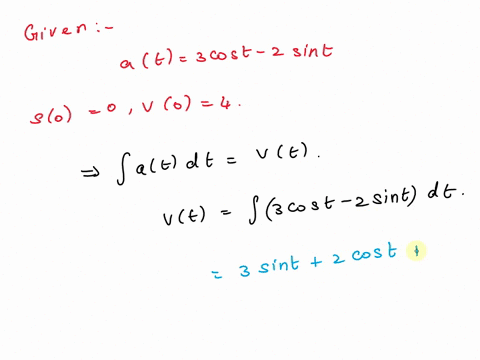 Given:-
a(t) = 3cost - 2 sint
s(0) = 0, v(0) = 4.
⇒ ∫a(t) dt = v(t).
v(t) = ∫(3cost - 2sint) dt.
= 3 sint + 2 cost +